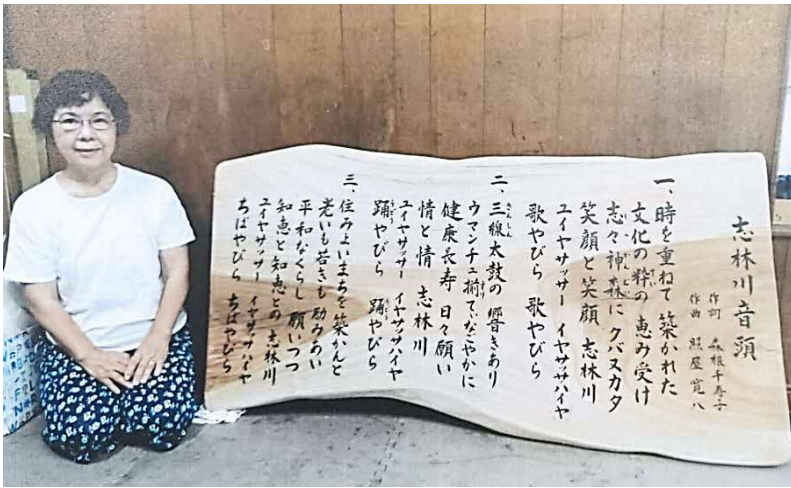 志林川音頭
作詞 森根千寿子
作曲 照屋寛八
一、時を重ねて 築かれた
文化の粋の 恵み受け
志々神森に クバヌカタ
笑顔と笑顔 志林川
ユイヤサッサー イヤササハイヤ
歌やびら 歌やびら
二、三線太鼓の 響きあり
ウマンチュ揃てぃなごやかに
健康長寿 日々願い
情と情 志林川
ユイヤサッサー イヤササハイヤ
踊やびら 踊やびら
三、住みよいまちを 築かんと
老いも若きも 励みあい
平和なくらし 願いつつ
知恵と知恵との 志林川
ユイヤサッサー イヤササハイヤ
ちばやびら ちばやびら